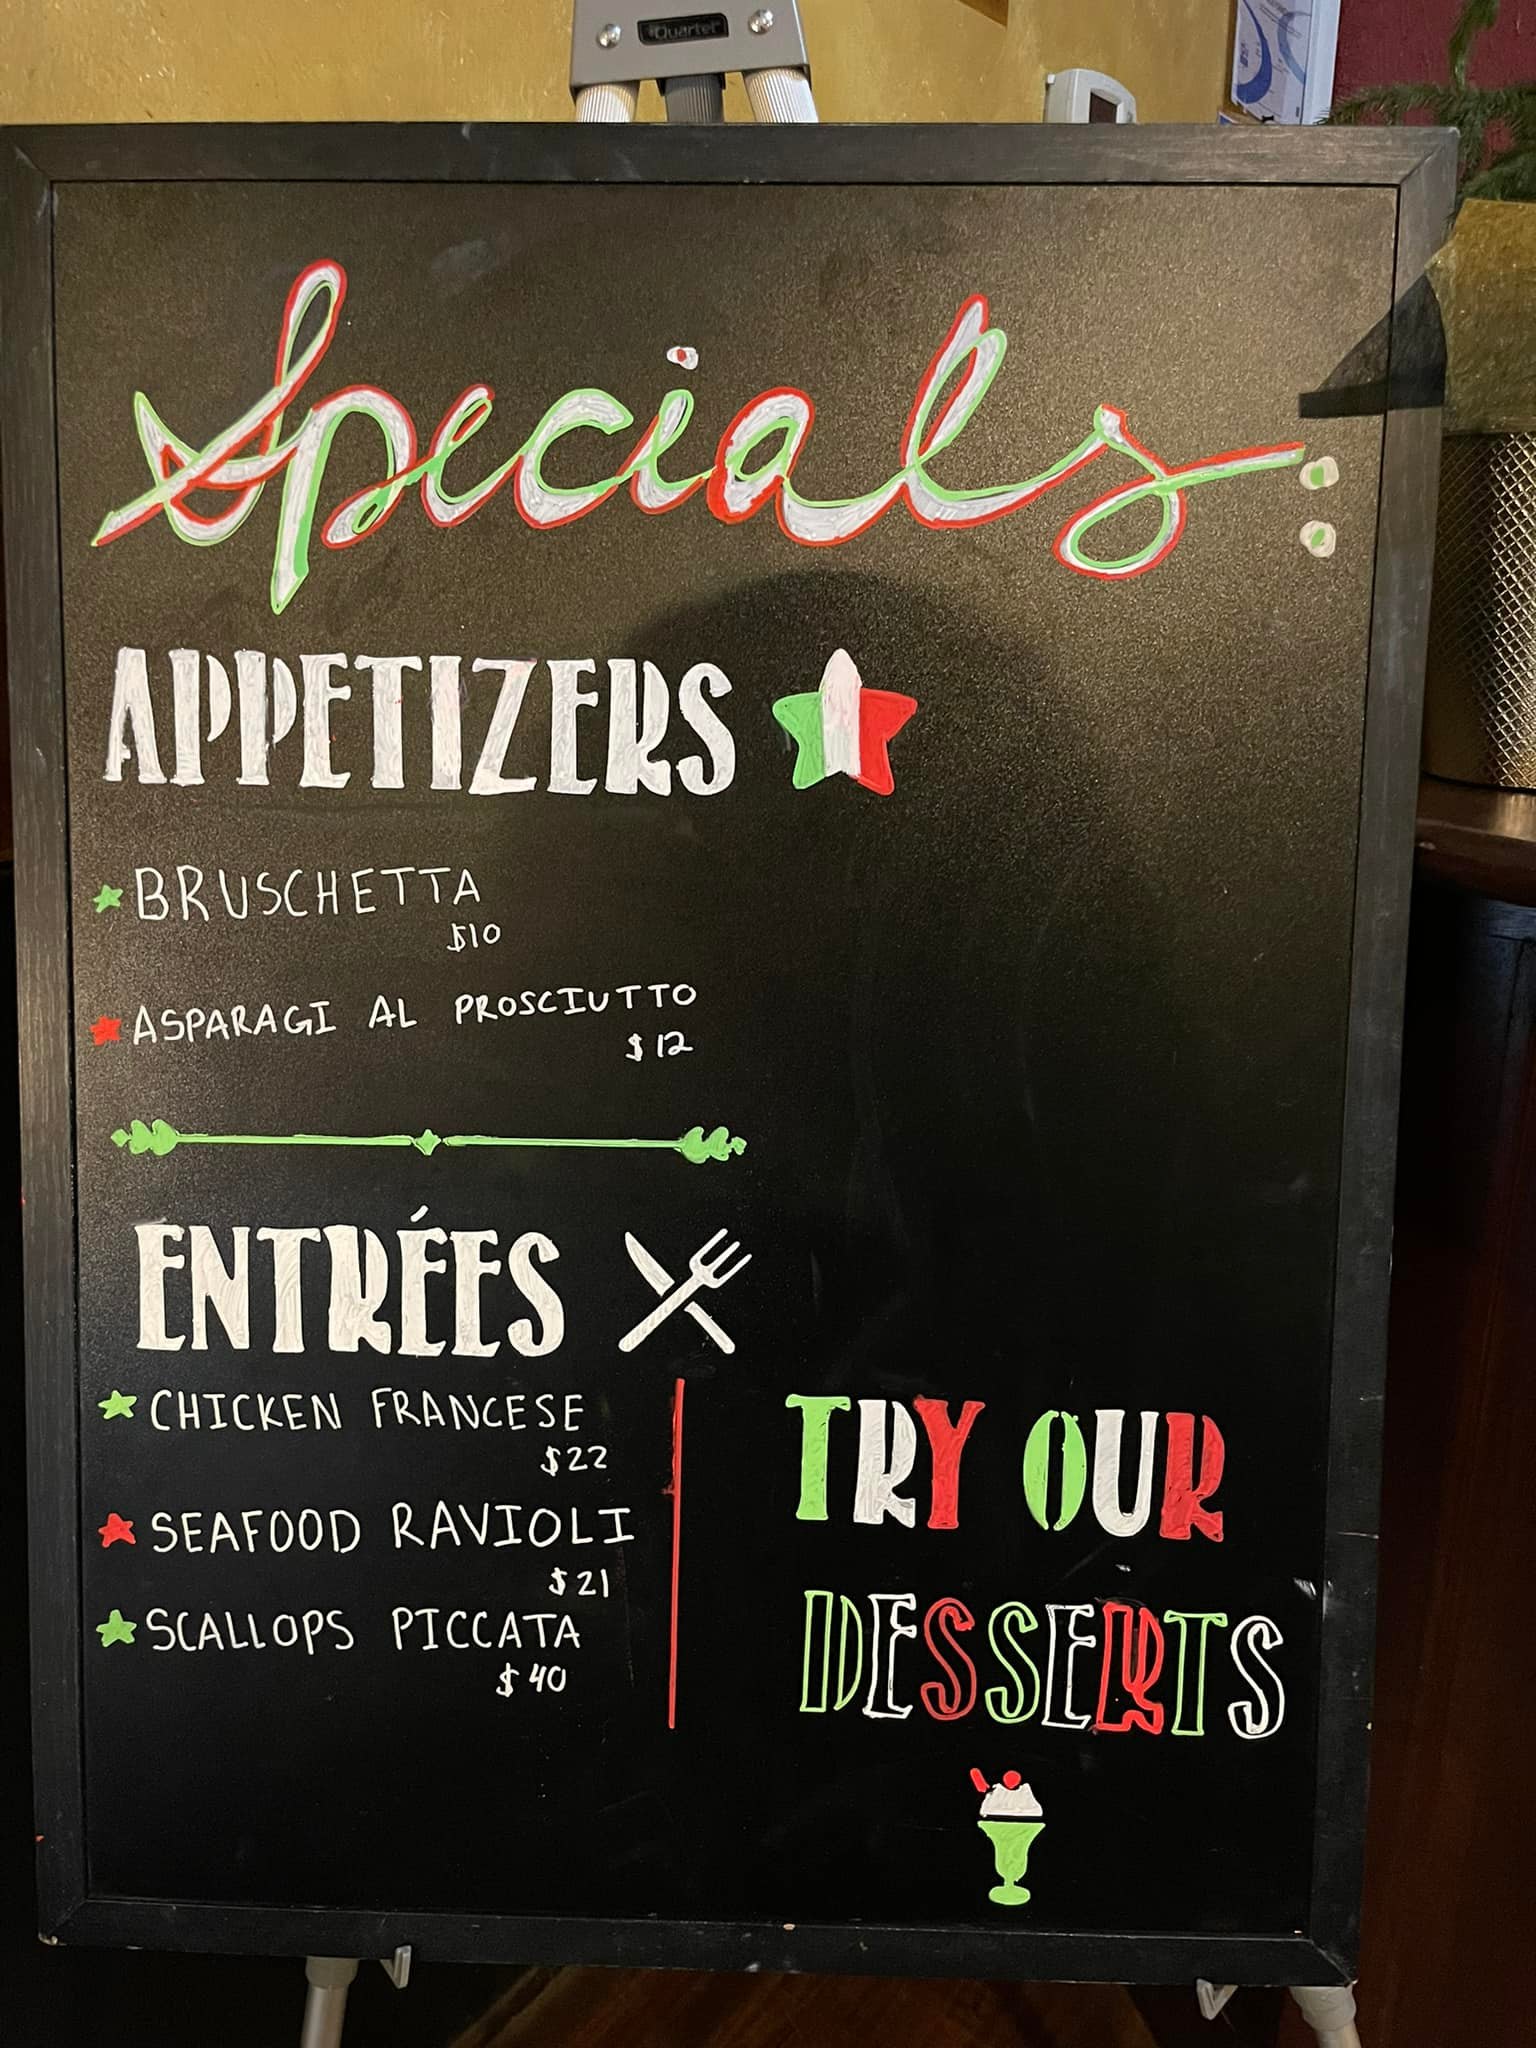 Quartet
Specials:
APPETIZERS
BRUSCHETTA
$10
ASPARAGI AL PROSCIUTTO
$12
ENTRÉES
CHICKEN FRANCESE
$22
SEAFOOD RAVIOLI
$21
SCALLOPS PICCATA
$40
TRY OUR
DESSERTS